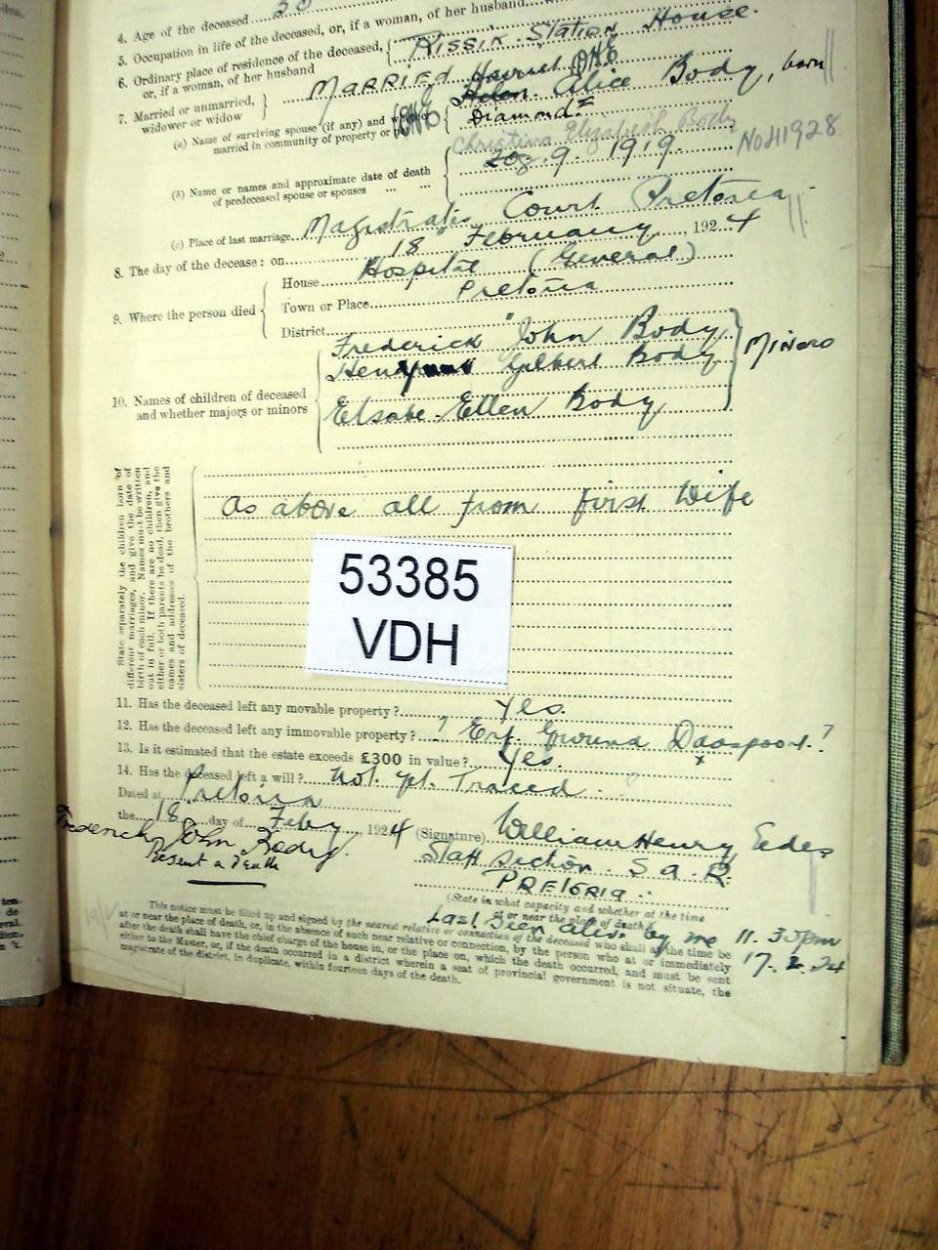 4. Age of the deceased
5. Occupation in life of the deceased, or, if a woman, of her husband
6. Ordinary place of residence of the deceased, or, if a woman, of her husband Rissik Station House.
7. Married or unmarried, widower or widow } MARRIED
(a) Name of surviving spouse (if any) and married in community of property or Harriet Alice Body, born
Diamond
Christina Elizabeth Body No 41928
(b) Name or names and approximate date of death of predeceased spouse or spouses ... ... 9. 1919.
(c) Place of last marriage Magistrates Court Pretoria
8. The day of the decease: on 18" February, 1924
9. Where the person died { House Hospital (General)
Town or Place Pretoria
District "
10. Names of children of deceased and whether majors or minors
Frederick John Body
Henry Gilbert Body } Minors
Elsabe Ellen Body
State separately the children born of
different marriages, and give the date of
birth of each minor. Names must be written
out in full. If there are no children, and
either or both parents be dead, then give the
names and addresses of the brothers and
sisters of deceased.
As above all from first Wife
53385
VDH
11. Has the deceased left any movable property? Yes.
12. Has the deceased left any immovable property? ? Erf. Ground Daaspoort. ?
13. Is it estimated that the estate exceeds £300 in value? Yes.
14. Has the deceased left a will? Not yet Traced.
Dated at Pretoria
the 18 day of Feby, 1924 (Signature) William Henry Eedes
Frederick John Body. Staff Section. S.A.R.
Present at Death PRETORIA
(State in what capacity and whether at the time
or near the place of death)
Last Seen alive by me 11.30pm
17.2.24
This notice must be filled up and signed by the nearest relative or connection of the deceased who shall at the time be
at or near the place of death, or, in the absence of such near relative or connection, by the person who at or immediately
after the death shall have the chief charge of the house in, or the place on, which the death occurred, and must be sent
either to the Master, or, if the death occurred in a district wherein a seat of provincial government is not situate, the
magistrate of the district, in duplicate, within fourteen days of the death.